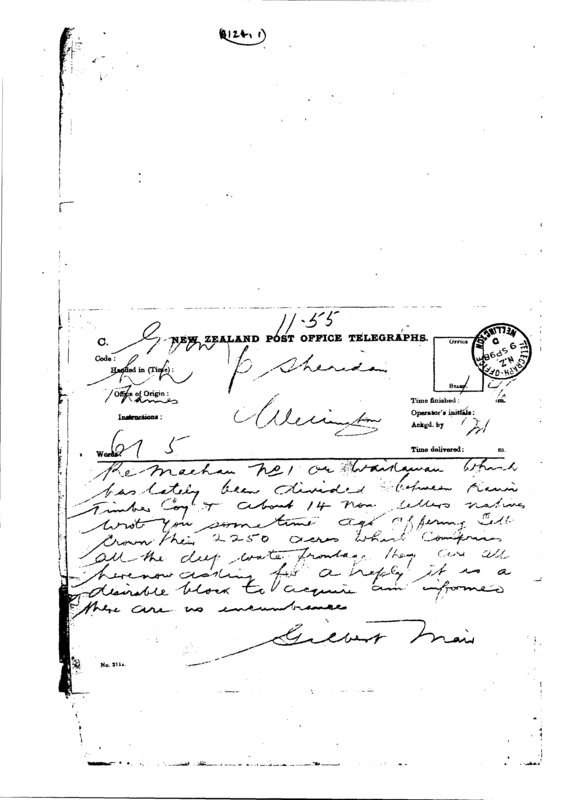 B124.1
11.55
C. NEW ZEALAND POST OFFICE TELEGRAPHS.
Govt
Code :
Handed in (Time) :
P Sheridan
Office of Origin :
Thames
Instructions :
Wellington
Words: 67 5
Office
Board
TELEGRAPH-OFFICE
N.Z.
9 SP 98
D
WELLINGTON
Time finished : m.
Operator's initials :
Ackgd. by
Time delivered : m.
Re No 1 or Waikawau which
has lately been divided between Kauri
Timber Coy & about 14 non sellers natives
wrote you sometime ago offering sell
Crown their 2250 acres which comprises
all the deep water frontage they are all
here now asking for a reply it is a
desirable block to acquire am informed
there are no encumbrances
Gilbert Mair
No. 211a.